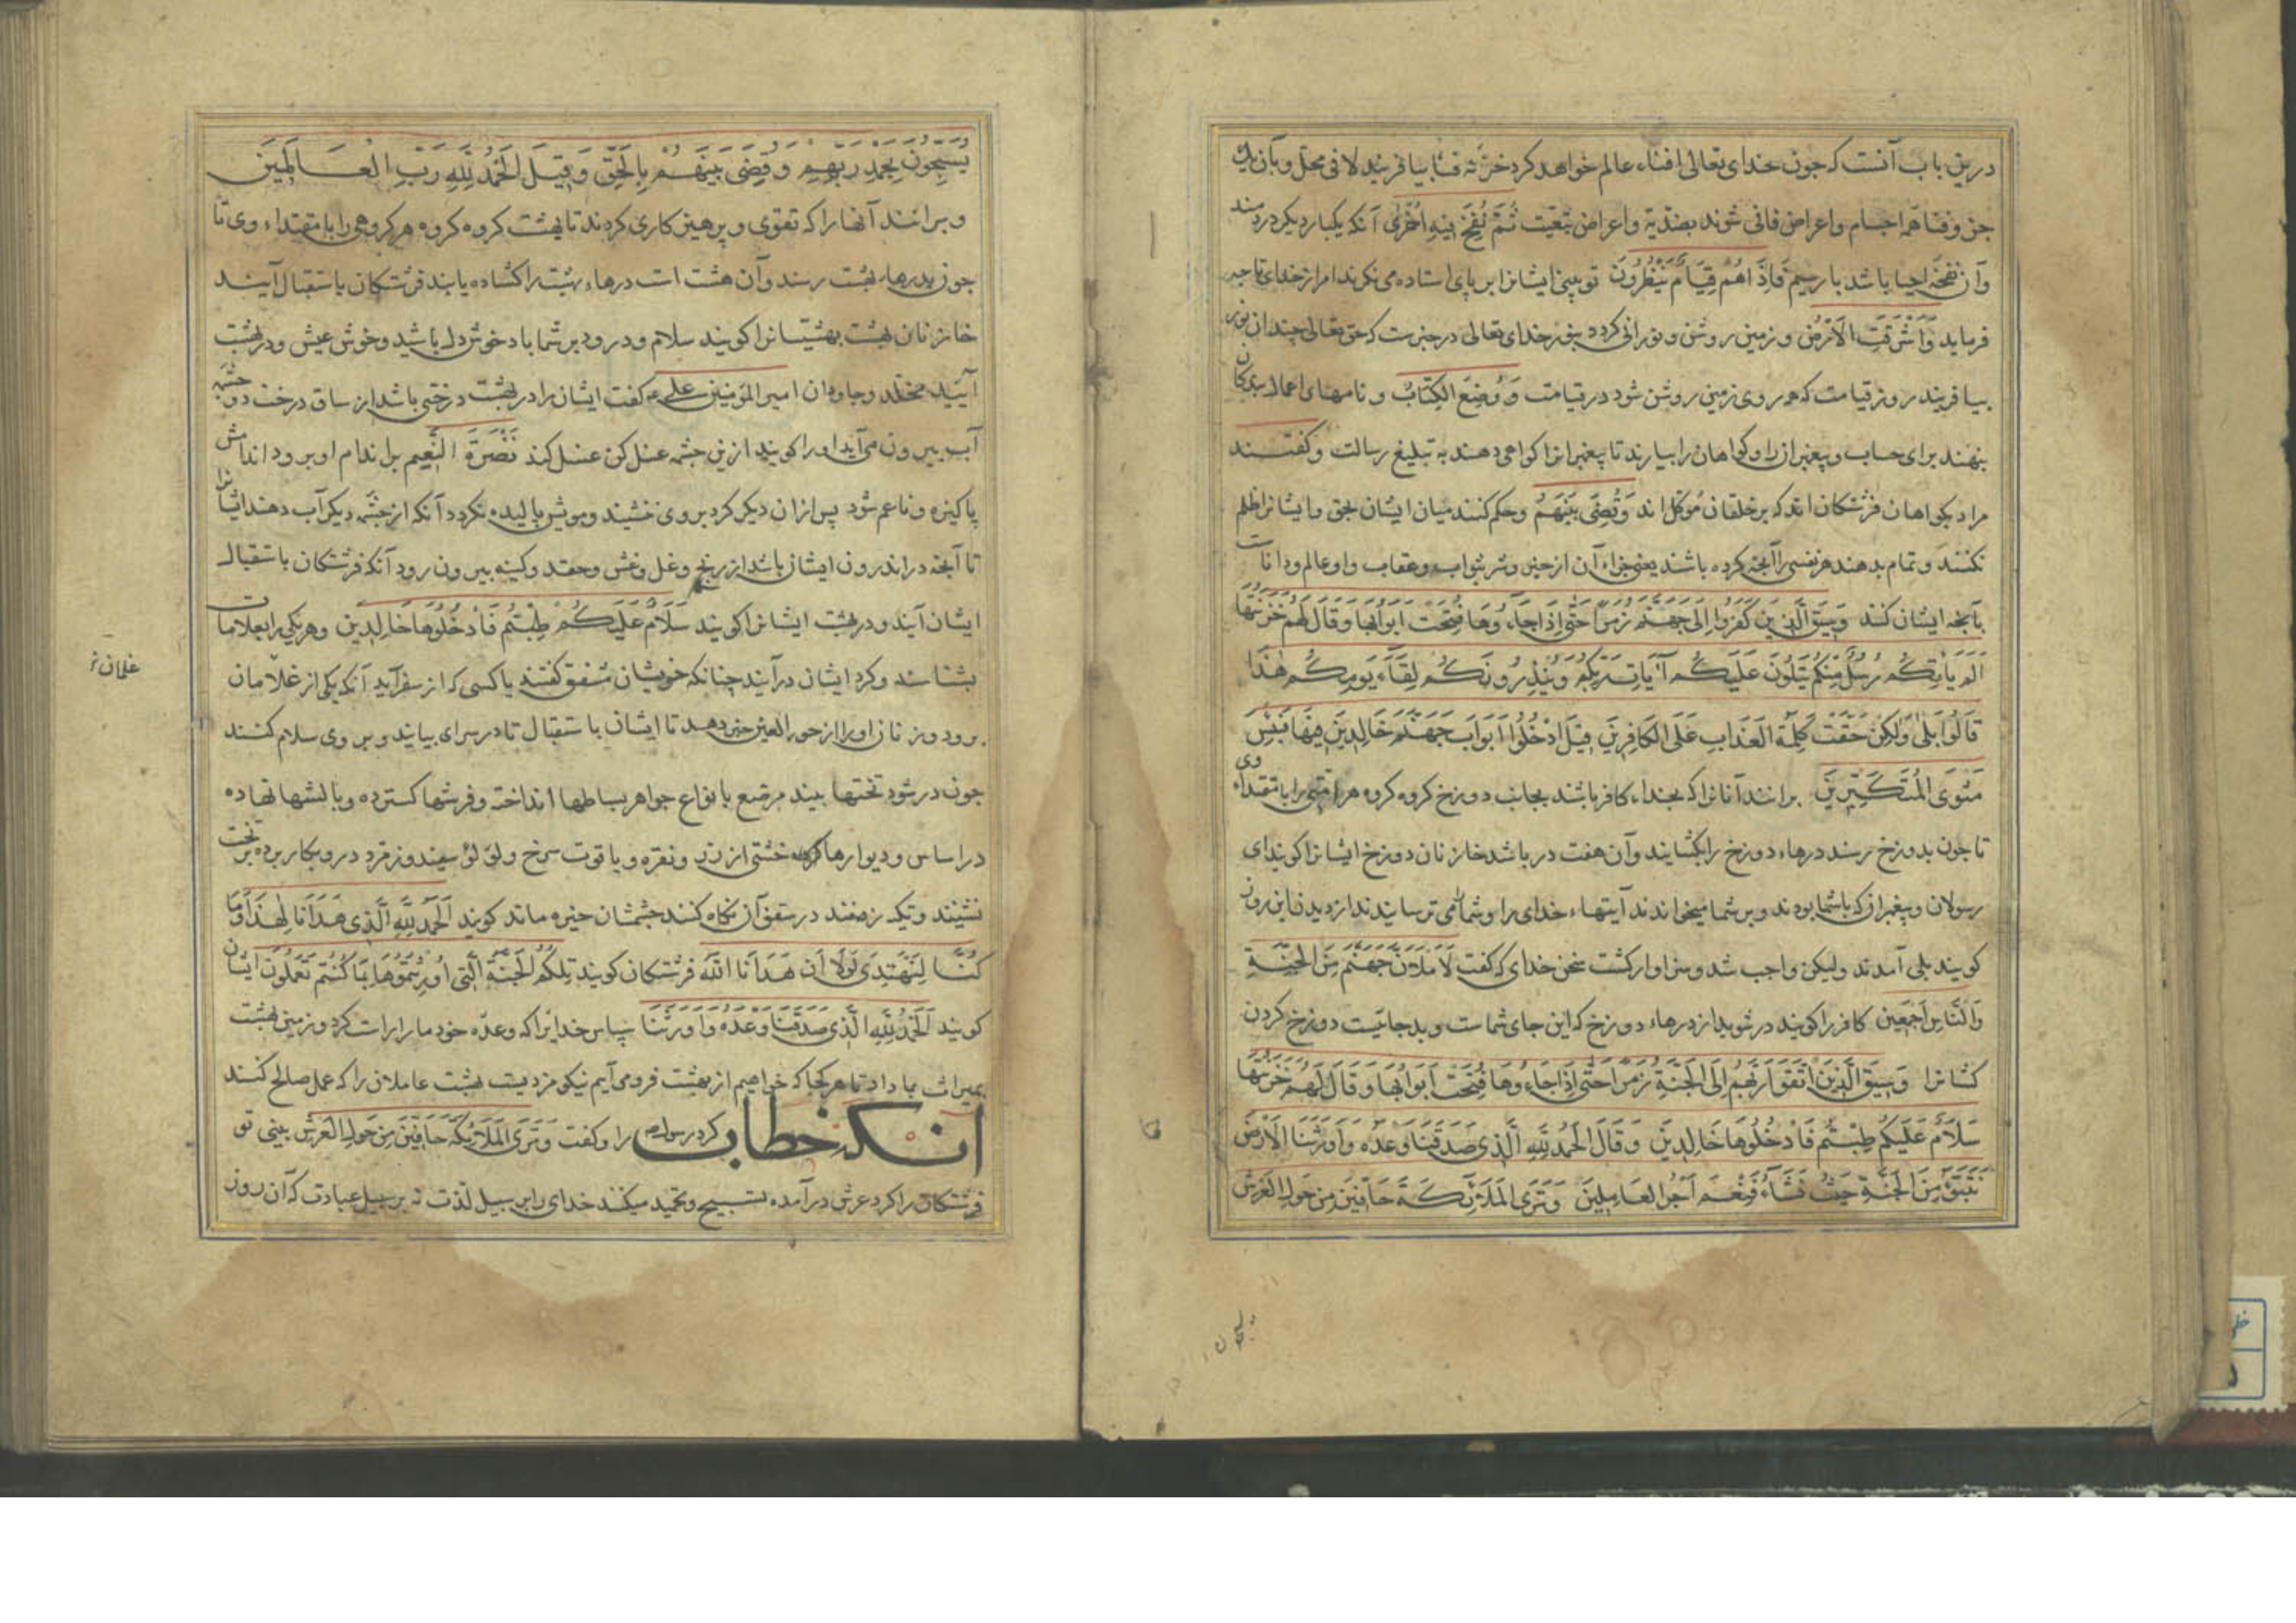 درین باب آنست که جون خدای تعالی افناء عالم خواهد کرد جزء فنا بیافریند لا فی محل و بآن یک
جزء فنا همه اجسام و اعراض فانی شوند بضدیة و اعراض بتبعیت ثُمَّ نُفِخَ فِیهِ اُخْرٰی آنکه یکبار دیکر دردمند
وآن نفخه احیا باشد بار سیم فَاِذَا هُمْ قِیَامٌ یَنْظُرُونَ تو بینی ایشانرا بر پای استاده می نکرند امر از خدای تا جه
فرماید وَاَشْرَقَتِ الْاَرْضُ و زمین روشن و نورانی کردد بنور خدای تعالی در خبرست که حق تعالی چندان نور
بیافریند روز قیامت که همه روی زمین روشن شود در قیامت وَوُضِعَ الْکِتَابُ و نامهای اعمال بندکان
بنهند برای حساب و پیغمبران را و کواهان را بیارند تا پیغمبرانرا کواهی دهند به تبلیغ رسالت و کفتند
مراد بکواهان فرشتکان اند که بر خلقان موکل اند وَقُضِیَ بَیْنَهُمْ وحکم کنند میان ایشان بحق و ایشانرا ظلم
نکنند و تمام بدهند هر نفسی را آنجه کرده باشند یعنی جزاء آن از خیر و شر بثواب و عقاب و او عالم و داناست
بآنجه ایشان کنند وَسِیقَ الَّذِینَ کَفَرُوا اِلَی جَهَنَّمَ زُمَرًا حَتّٰی اِذَا جَاءُوهَا فُتِحَتْ اَبْوَابُهَا وَقَالَ لَهُمْ خَزَنَتُهَا
اَلَمْ یَأْتِکُمْ رُسُلٌ مِنْکُمْ یَتْلُونَ عَلَیْکُمْ آیَاتِ رَبِّکُمْ وَیُنْذِرُونَکُمْ لِقَاءَ یَوْمِکُمْ هٰذَا
قَالُوا بَلٰی وَلٰکِنْ حَقَّتْ کَلِمَةُ الْعَذَابِ عَلَی الْکَافِرِینَ قِیلَ ادْخُلُوا اَبْوَابَ جَهَنَّمَ خَالِدِینَ فِیهَا فَبِئْسَ
مَثْوَی الْمُتَکَبِّرِینَ برانند آنانرا که بخداء کافر باشند بجانب دوزخ کروه کروه هر امتی را با مقتداء وی
تا جون بدوزخ رسند درهاء دوزخ را بکشایند وآن هفت در باشد خازنان دوزخ ایشانرا کویند ای
رسولان و پیغمبران که با شما بودند و بر شما میخواندند آیتهاء خدای را و شما را می ترسایندند از دیدن این روز
کویند بلی آمدند ولیکن واجب شد و سزاوار کشت سخن خدای که کفت لَاَمْلَاَنَّ جَهَنَّمَ مِنَ الْجِنَّةِ
وَالنَّاسِ اَجْمَعِینَ کافر را کویند در شوید از درهاء دوزخ که این جای شماست و بد جائیست دوزخ کردن
کشانرا وَسِیقَ الَّذِینَ اتَّقَوْا رَبَّهُمْ اِلَی الْجَنَّةِ زُمَرًا حَتّٰی اِذَا جَاءُوهَا وَفُتِحَتْ اَبْوَابُهَا وَقَالَ لَهُمْ خَزَنَتُهَا
سَلَامٌ عَلَیْکُمْ طِبْتُمْ فَادْخُلُوهَا خَالِدِینَ وَقَالُ الْحَمْدُ لِلّٰهِ الَّذِی صَدَقَنَا وَعْدَهُ وَاَوْرَثَنَا الْاَرْضَ
نَتَبَوَّءُ مِنَ الْجَنَّةِ حَیْثُ نَشَاءُ فَنِعْمَ اَجْرُ الْعَامِلِینَ وَتَرَی الْمَلَائِکَةَ حَافِّینَ مِنْ حَوْلِ الْعَرْشِ
یسبحون
یُسَبِّحُونَ بِحَمْدِ رَبِّهِمْ وَقُضِیَ بَیْنَهُمْ بِالْحَقِّ وَقِیلَ الْحَمْدُ لِلّٰهِ رَبِّ الْعَالَمِینَ
وبرانند آنها را که تقوی و پرهیزکاری کردند تا بهشت کروه کروه هر کروهی را با مقتداء وی تا
جون بدرهاء بهشت رسند وآن هشت است درهاء بهشت را کشاده یابند فرشتکان باستقبال آیند
خازنان بهشت بهشتیانرا کویند سلام و درود بر شما باد خوش دل باشید وخوش عیش و در بهشت
آئید مخلد و جاودان امیر المؤمنین علی ع کفت ایشان را در بهشت درختی باشد از ساق درخت دو جشمه
آب بیرون می آید او را کویند ازین جشمه غسل کن غسل کند نَضْرَةَ النَّعِیمِ بر اندام او برود اندامش
پاکیزه و ناعم شود پس از ان دیکر کرد بروی ننشیند و مویش بالیده نکردد آنکه از جشمه دیکر آب دهند ایشانرا
تا آنجه در اندرون ایشان باشد از رنج و غل و غش وحقد و کینه بیرون رود آنکه فرشتکان باستقبال
ایشان آیند و در بهشت ایشانرا کویند سَلَامٌ عَلَیْکُمْ طِبْتُمْ فَادْخُلُوهَا خَالِدِینَ و هر یکی را بعلامات
بشناسند و کرد ایشان درآیند چنانکه خویشان مشفق کفتند یا کسی که از سفر آید آنکه یکی از غلامان
غلمان
برود و زنان او را از حور العین خبر دهد تا ایشان باستقبال تا در سرای بیایند و بر وی سلام کنند
جون در شود تختها بیند مرصع بانواع جواهر بساطها انداخته و فرشها کسترده و بالشها نهاده
در اساس و دیوارها خشتی از زر و نقره و یاقوت سرخ و لؤلؤ سفید و زمرد درو بکار برده بر تخت
نشینند و تکیه زنند در سقف آن نکاه کنند جشمشان خیره ماند کویند اَلْحَمْدُ لِلّٰهِ الَّذِی هَدَانَا لِهٰذَا وَمَا
کُنَّا لِنَهْتَدِیَ لَوْلَا اَنْ هَدَانَا اللّٰهُ فرشتکان کویند تِلْکُمُ الْجَنَّةُ الَّتِی اُورِثْتُمُوهَا بِمَا کُنْتُمْ تَعْمَلُونَ ایشان
کویند اَلْحَمْدُ لِلّٰهِ الَّذِی صَدَقَنَا وَعْدَهُ وَاَوْرَثَنَا سپاس خدایرا که وعده خود ما را راست کرد و زمین بهشت
بمیراث بما داد تا هر کجا که خواهیم از بهشت فرومی آییم نیکو مزدیست بهشت عاملان را که عمل صالح کنند
انکه خطاب کرد رسول را و کفت وَتَرَی الْمَلَائِکَةَ حَافِّینَ مِنْ حَوْلِ الْعَرْشِ بینی تو
فرشتکان را کرد عرش درآمده تسبیح و تحمید میکنند خدای را بر سبیل لذت نه بر سبیل عبادت که آن روز